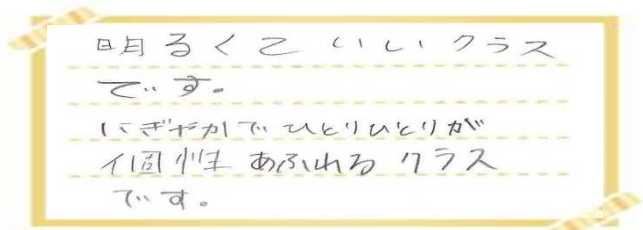 明るくていいクラス
です。
にぎやかでひとりひとりが
個性あふれるクラス
です。